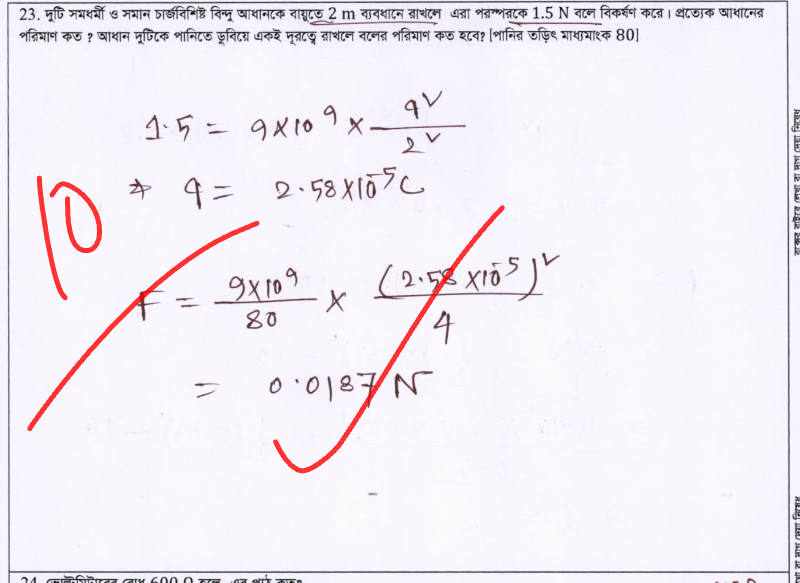 23. দুটি সমধর্মী ও সমান চার্জবিশিষ্ট বিন্দু আধানকে বায়ুতে 2 m ব্যবধানে রাখলে এরা পরস্পরকে 1.5 N বলে বিকর্ষণ করে। প্রত্যেক আধানের
পরিমাণ কত ? আধান দুটিকে পানিতে ডুবিয়ে একই দূরত্বে রাখলে বলের পরিমাণ কত হবে? [পানির তড়িৎ মাধ্যমাংক 80]
1.5 = 9×10⁹ × q²/2²
⇒ q = 2.58×10⁻⁵ C
10
F = 9×10⁹/80 × (2.58×10⁻⁵)²/4
= 0.0187 N